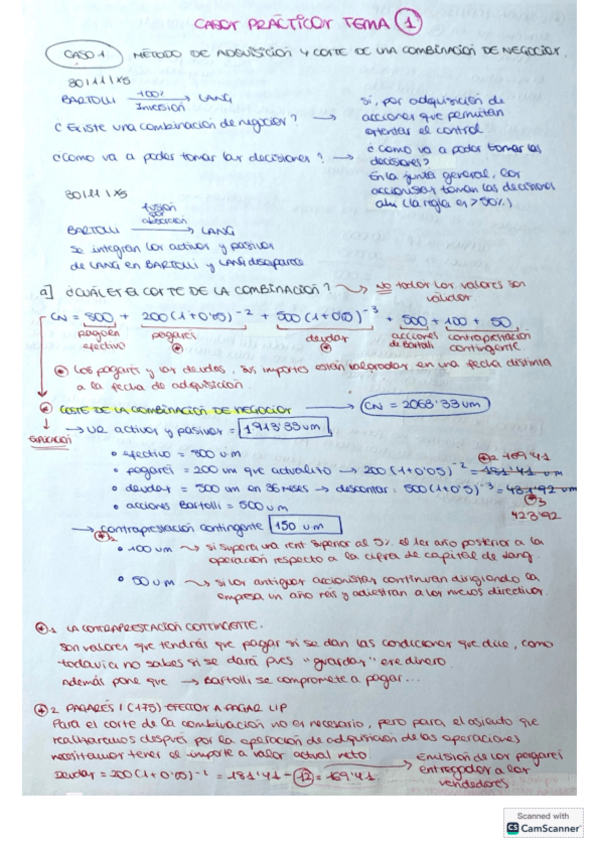 CASOS PRÁCTICOS TEMA 1
CASO 1 MÉTODO DE ADQUISICIÓN Y COSTE DE UNA COMBINACIÓN DE NEGOCIOS.
30/11/X5
BARTOLLI 100% Inversión LANG
¿Existe una combinación de negocios? → Sí, por adquisición de
acciones que permitan
ostentar el control
¿Cómo va a poder tomar las decisiones? → ¿Cómo va a poder tomar las
decisiones?
En la junta general, los
accionistas toman las decisiones
ahí (la regla es >50%)
30/11/X5
BARTOLLI fusión por absorción LANG
Se integran los activos y pasivos
de LANG en BARTOLLI y LANG desaparece
a] ¿CUÁL ES EL COSTE DE LA COMBINACIÓN? → NO todos los valores son
válidos.
CN = 800 + 200(1+0'05)⁻² + 500(1+0'05)⁻³ + 500 + 100 + 50
pago en efectivo pagarés deudas acciones de Bartolli contraprestación contingente
* Los pagarés y las deudas, sus importes están valorados en una fecha distinta
a la fecha de adquisición.
* COSTE DE LA COMBINACIÓN DE NEGOCIOS → CN = 2063'33 um
EXPLICACIÓN
→ VR activos y pasivos = 1913'33 um
• efectivo = 800 um
*2 169'41
• pagarés = 200 um que actualizo → 200(1+0'05)⁻² = 181'41 um
• deudas = 500 um en 36 meses → descontar: 500(1+0'05)⁻³ = 431'92 um
*3
423'92
• acciones Bartolli = 500 um
→ contraprestación contingente 150 um
*1
• 100 um → si supera una rent superior al 5% el 1er año posterior a la
operación respecto a la cifra de capital de Lang.
• 50 um → si los antiguos accionistas continúan dirigiendo la
empresa un año más y adiestran a los nuevos directivos.
*1 LA CONTRAPRESTACIÓN CONTINGENTE.
Son valores que tendrás que pagar si se dan las condiciones que dice, como
todavía no sabes si se dará pues "guardas" ese dinero.
Además pone que → Bartolli se compromete a pagar...
*2 PAGARÉS / (175) EFECTOS A PAGAR L/P
Para el coste de la combinación no es necesario, pero para el asiento que
realizaremos después por la operación de adquisición de las operaciones
necesitamos tener el importe a valor actual neto
Deudas = 200(1+0'05)⁻² = 181'41 - 12 = 169'41 → Emisión de los pagarés
entregados a los
vendedores
Scanned with
CS CamScanner